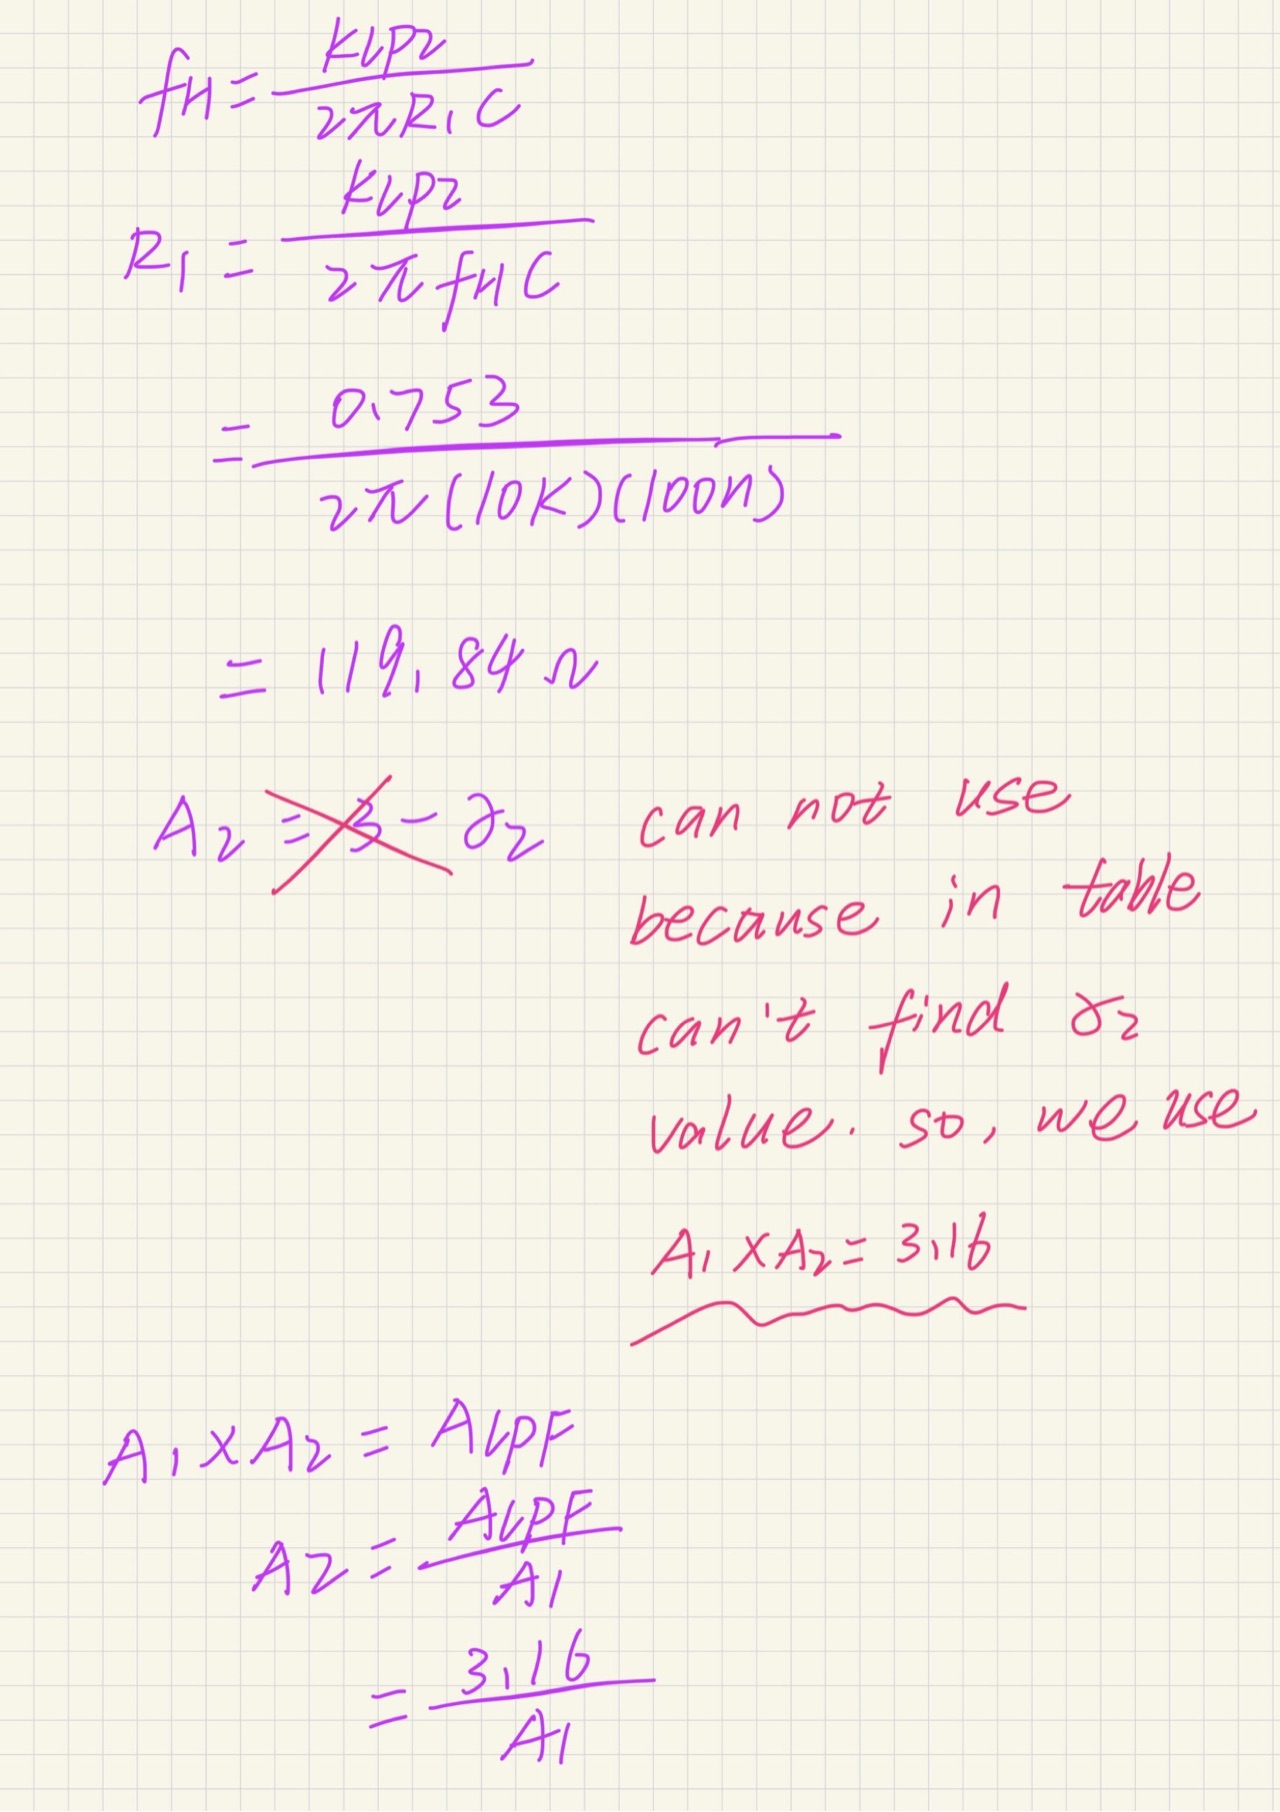 fH = KLP2 / 2πR1C
R1 = KLP2 / 2πfHC
= 0.753 / 2π(10K)(100n)
= 119.84Ω
A2 = 3 - ∂2
can not use
because in table
can't find ∂2
value. so, we use
A1 × A2 = 3.16
A1 × A2 = ALPF
A2 = ALPF / A1
= 3.16 / A1